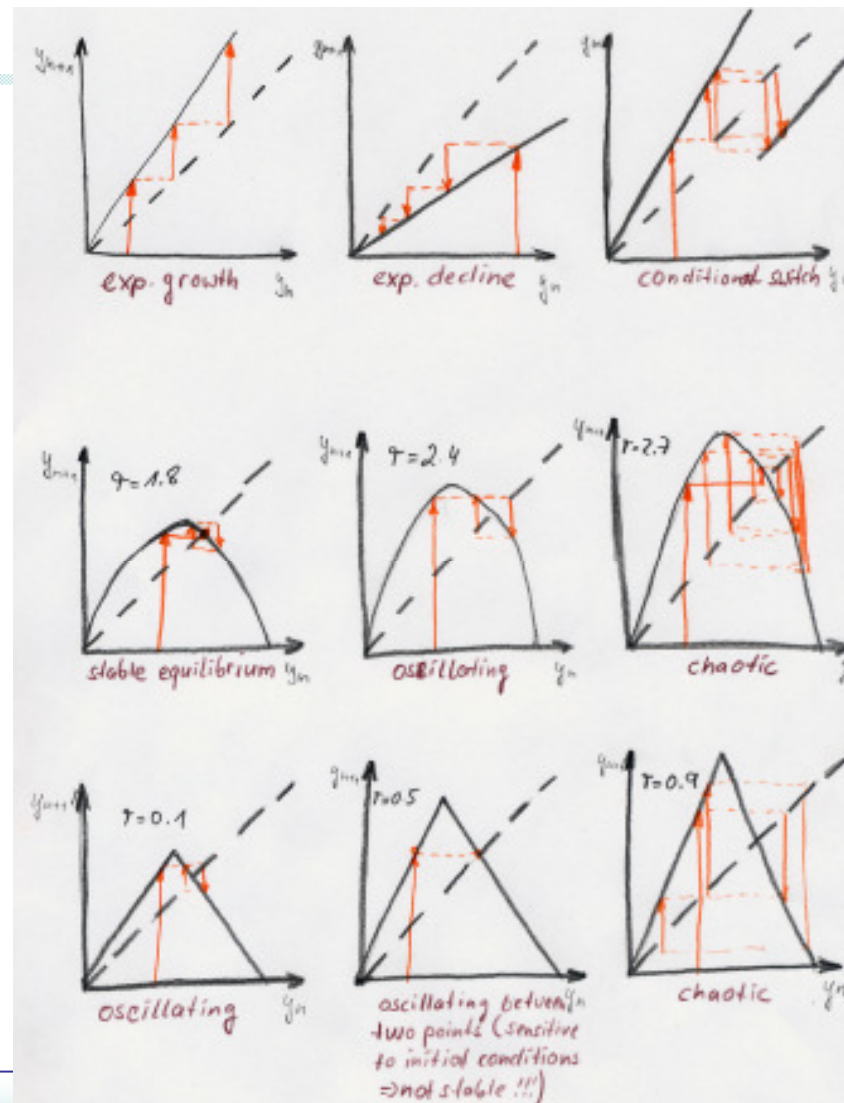 yn+1
exp. growth
yn
yn+1
exp. decline
yn
conditional switch
yn+1
r=1.8
stable equilibrium yn
yn+1
r=2.4
oscillating
yn
yn+1
r=2.7
chaotic
yn+1
r=0.1
oscillating
yn
yn+1
r=0.5
oscillating between yn
two points (sensitive
to initial conditions
=>not stable !!!)
yn+1
r=0.9
chaotic
yn